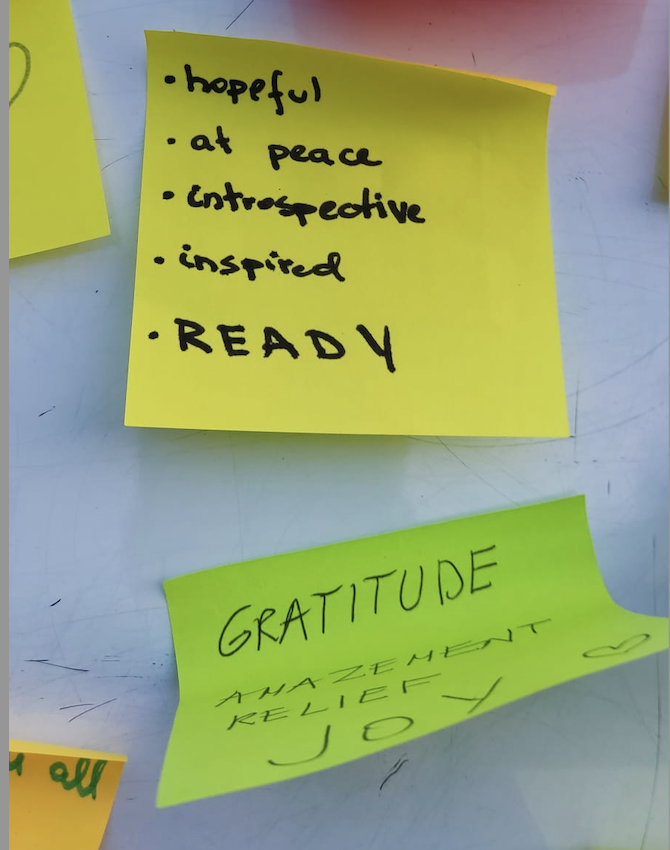 • hopeful
• at peace
• introspective
• inspired
• READY
GRATITUDE
AMAZEMENT
RELIEF
JOY
all